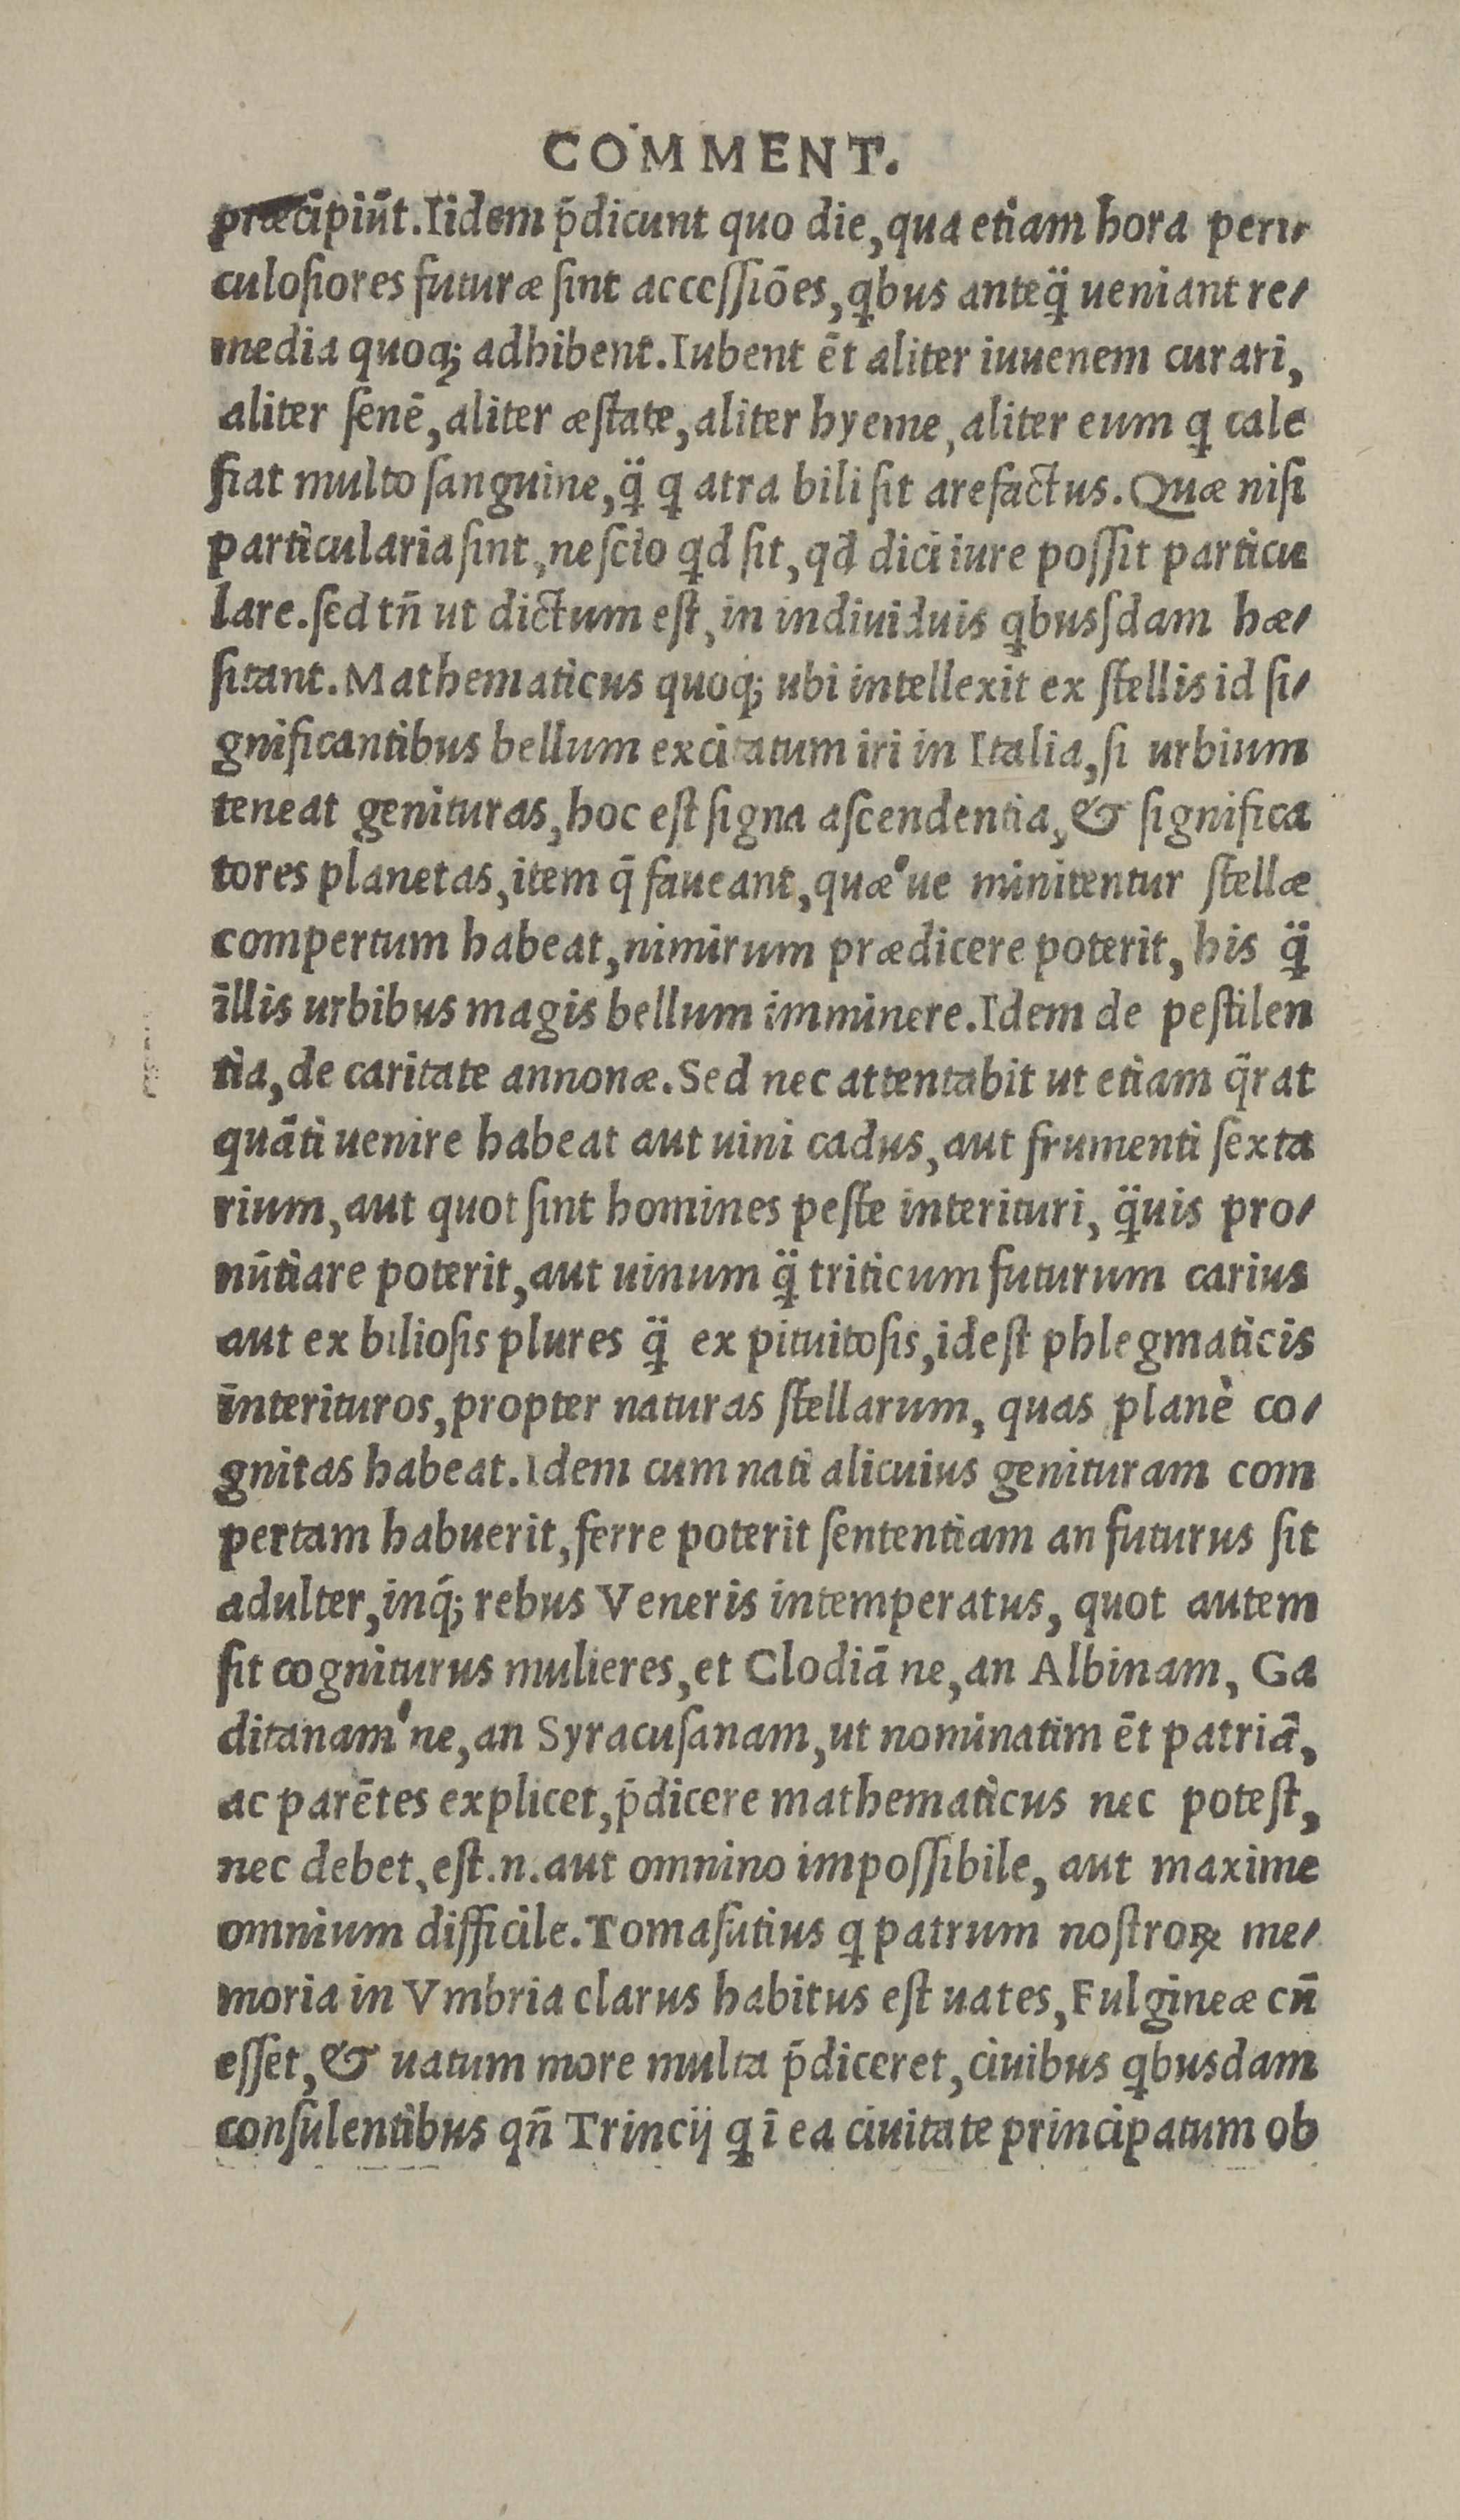 COMMENT.
præcipiūt. Iidem p̄dicunt quo die, qua etiam hora peri-
culosiores futuræ sint accessiōes, qbus anteq̈ ueniant re-
media quoq; adhibent. Iubent ēt aliter iuuenem curari,
aliter senē, aliter æstate, aliter hyeme, aliter eum q cale
fiat multo sanguine, q̈ q atra bili sit arefactus. Quæ nisi
particularia sint, nescio qd sit, qd̄ dici iure possit particu
lare. sed tn̄ ut dictum est, in indiuiduis qbusſdam hæ-
sitant. Mathematicus quoq; ubi intellexit ex stellis id si-
gnificantibus bellum excitatum iri in Italia, si urbium
teneat genituras, hoc est signa ascendentia, & significa
tores planetas, item q̄ faueant, quæ'ue minitentur stellæ
compertum habeat, nimirum prædicere poterit, his q̈
illis urbibus magis bellum imminere. Idem de pestilen
tia, de caritate annonæ. Sed nec attentabit ut etiam q̄rat
quāti uenire habeat aut uini cadus, aut frumenti sexta
rium, aut quot sint homines peste interituri, q̈uis pro-
nūtiare poterit, aut uinum q̈ triticum futurum carius
aut ex biliosis plures q̈ ex pituitosis, idest phlegmaticis
interituros, propter naturas stellarum, quas planè co-
gnitas habeat. Idem cum nati alicuius genituram com
pertam habuerit, ferre poterit sententiam an futurus sit
adulter, inq́; rebus Veneris intemperatus, quot autem
sit cogniturus mulieres, et Clodiā ne, an Albinam, Ga
ditanam'ne, an Syracusanam, ut nominatim ēt patriā,
ac parētes explicet, p̄dicere mathematicus nec potest,
nec debet, est.n. aut omnino impossibile, aut maxime
omnium difficile. Tomasutius q patrum nostroꝝ me-
moria in Vmbria clarus habitus est uates, Fulgineæ cū
esset, & uatum more multa p̄diceret, ciuibus qbusdam
consulentibus qn̄ Trincij q ī ea ciuitate principatum ob